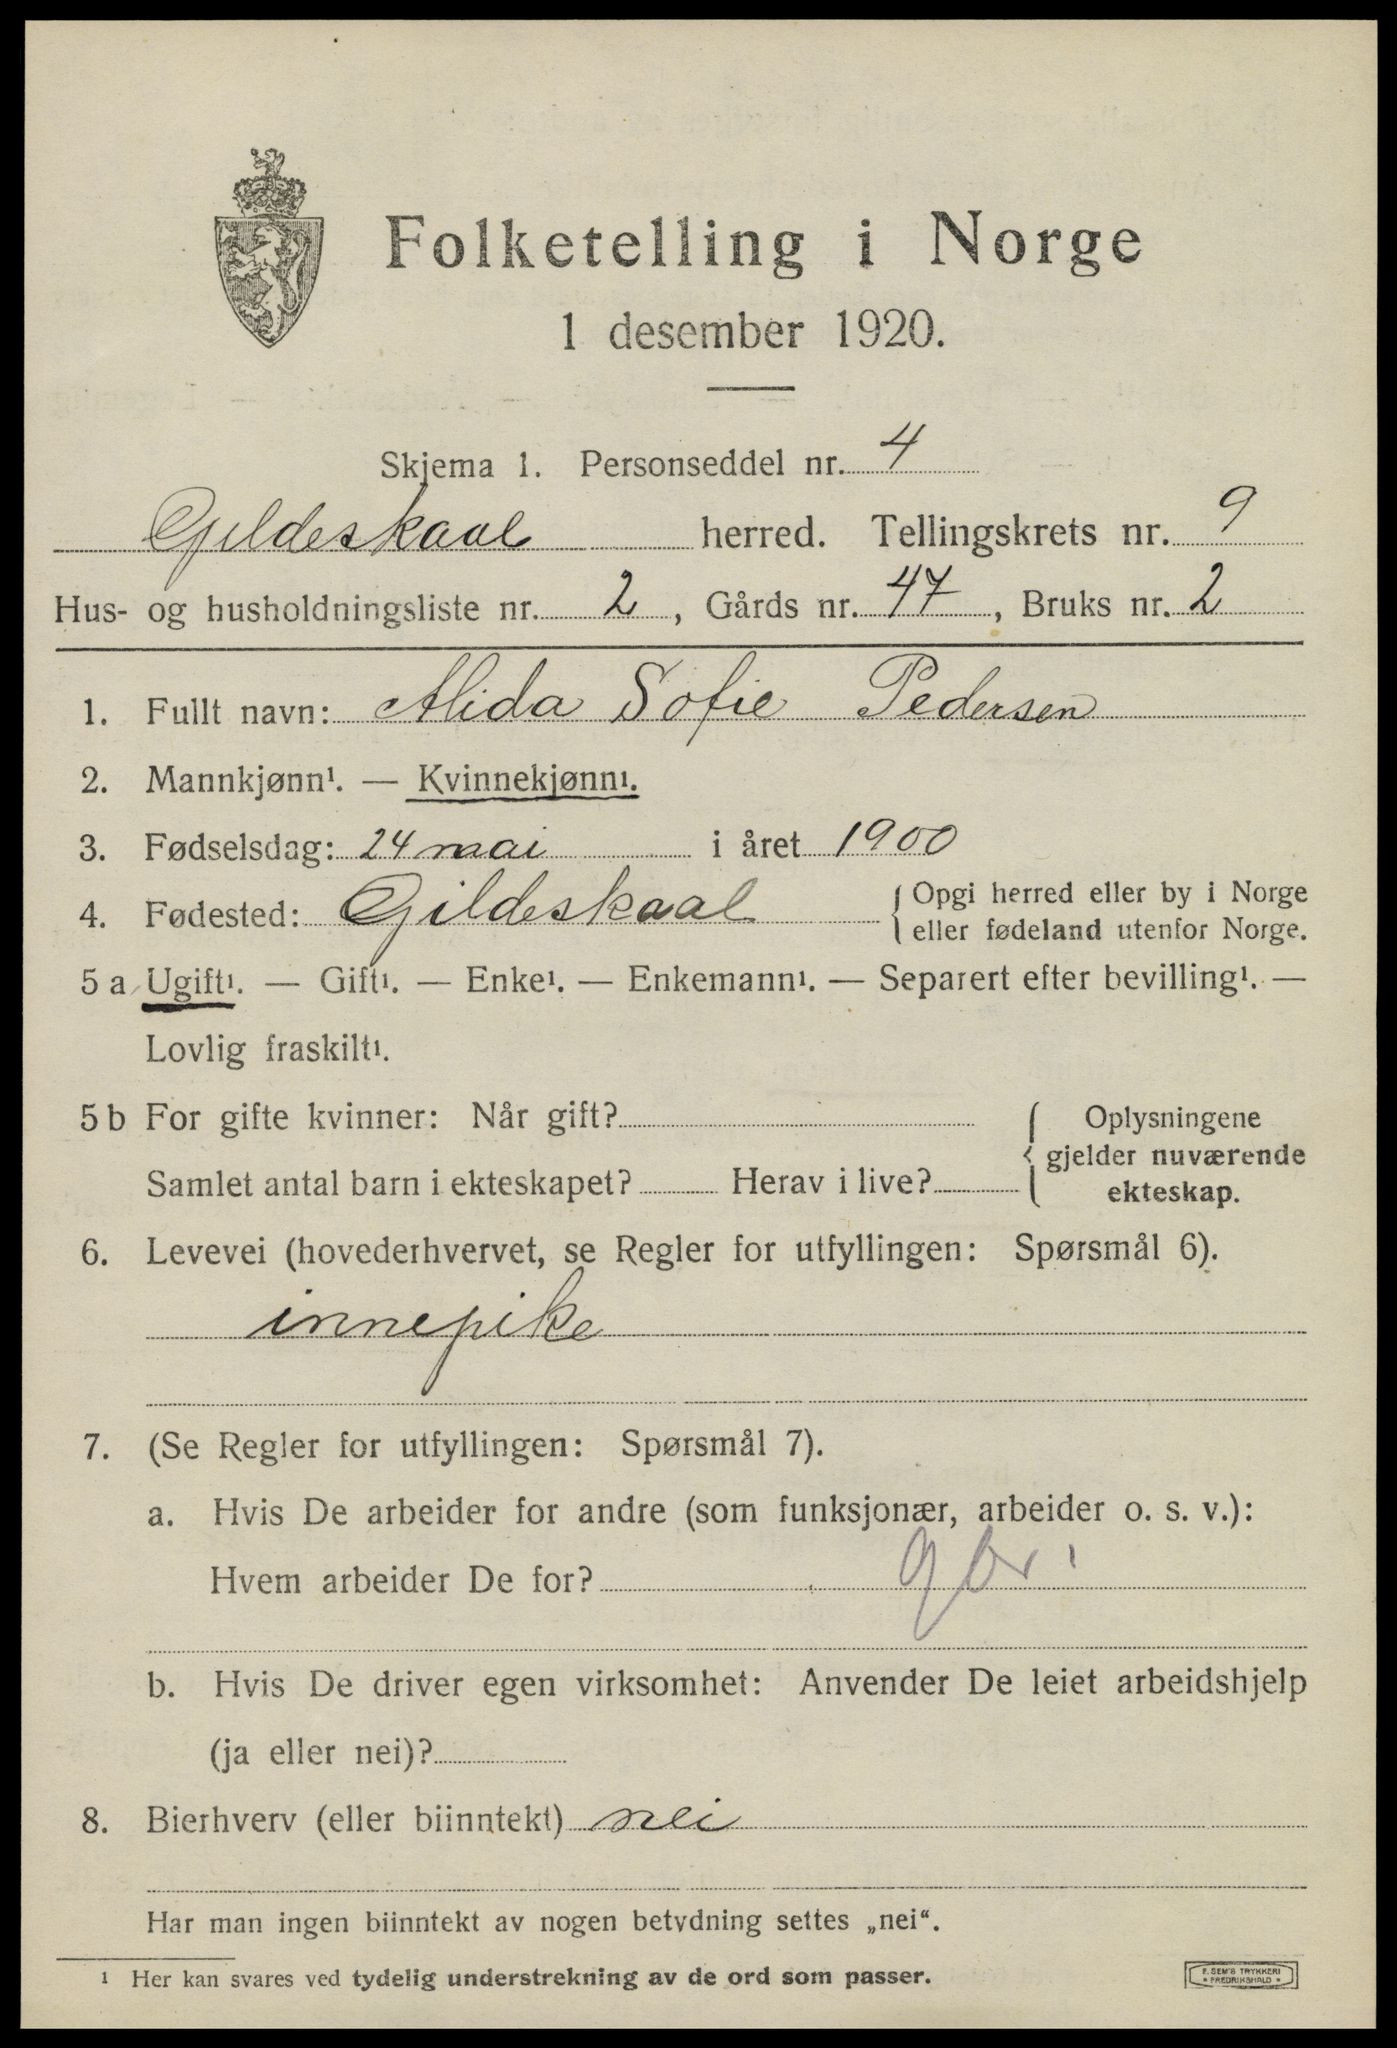 Folketelling i Norge
1 desember 1920.
Skjema 1. Personseddel nr. 4
Gildeskaal herred. Tellingskrets nr. 9
Hus- og husholdningsliste nr. 2, Gårds nr. 47, Bruks nr. 2
1. Fullt navn: Alida Sofie Pedersen
2. Mannkjønn¹. — Kvinnekjønn¹.
3. Fødselsdag: 24 mai i året 1900
4. Fødested: Gildeskaal { Opgi herred eller by i Norge
eller fødeland utenfor Norge.
5 a Ugift¹. — Gift¹. — Enke¹. — Enkemann¹. — Separert efter bevilling¹. —
Lovlig fraskilt¹.
5 b For gifte kvinner: Når gift? { Oplysningene
gjelder nuværende
Samlet antal barn i ekteskapet? Herav i live? ekteskap.
6. Levevei (hovederhvervet, se Regler for utfyllingen: Spørsmål 6).
innepike
7. (Se Regler for utfyllingen: Spørsmål 7).
a. Hvis De arbeider for andre (som funksjonær, arbeider o. s. v.):
Hvem arbeider De for? gbr.
b. Hvis De driver egen virksomhet: Anvender De leiet arbeidshjelp
(ja eller nei)?
8. Bierhverv (eller biinntekt) nei
Har man ingen biinntekt av nogen betydning settes „nei“.
¹ Her kan svares ved tydelig understrekning av de ord som passer.
F. SEM'S TRYKKERI
* FREDRIKSHALD *